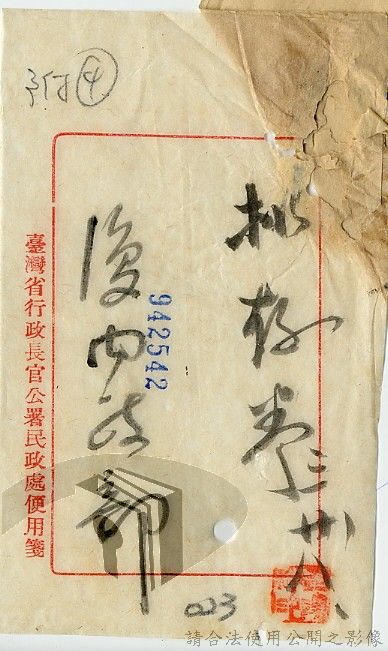 附④
批存卷 三 卅八
復內政部
942542
臺灣省行政長官公署民政處便用箋
023
請合法使用公開之影像